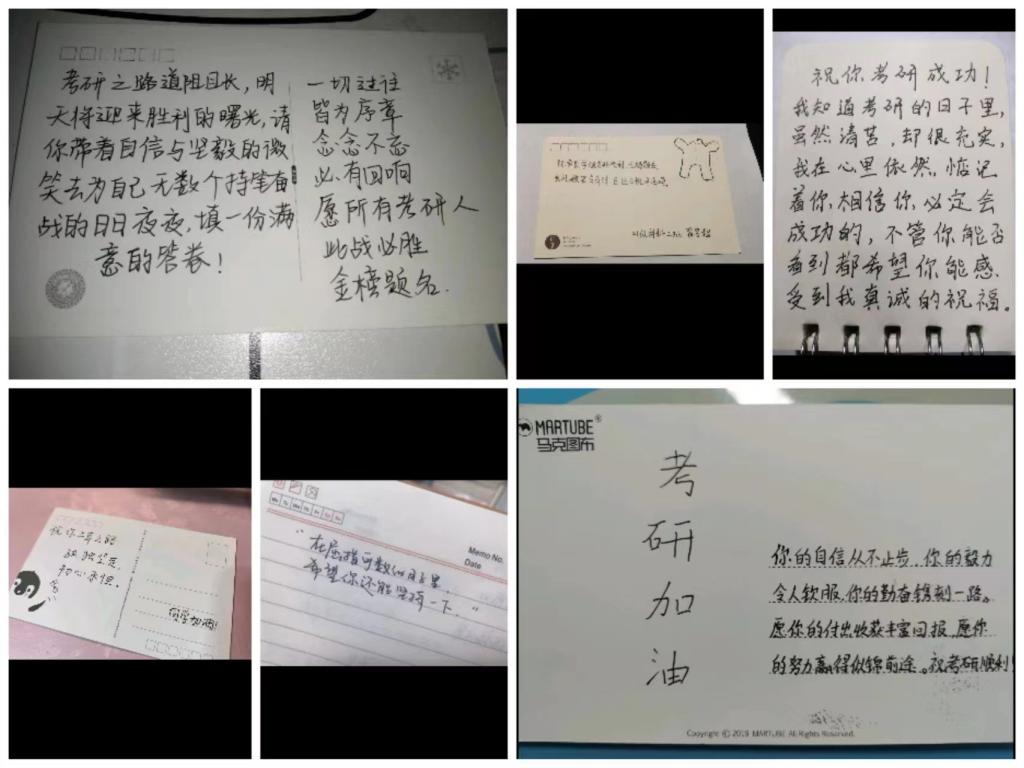 考研之路道阻且长，明
天将迎来胜利的曙光，请
你带着自信与坚毅的微
笑去为自己无数个持笔奋
战的日日夜夜，填一份满
意的答卷！
一切过往
皆为序章
念念不忘
必有回响
愿所有考研人
此战必胜
金榜题名.
祝你考研成功！
我知道考研的日子里，
虽然清苦，却很充实，
我在心里依然，惦记
着你，相信你，必定会
成功的，不管你能否
看到都希望你能感
受到我真诚的祝福。
祝你
初心永恒.
同学加油!
Memo No.
Date
Mo Tu We Th Fr Sa Su
"在屈指可数的日子里，
希望你还能坚持一下。"
MARTUBE®
马克图布
考
研
加
油
你的自信从不止步，你的毅力
令人钦服，你的勤奋镌刻一路。
愿你的付出收获丰富回报，愿你
的努力赢得似锦前途。祝考研顺利！
Copyright © 2019 MARTUBE All Rights Reserved.